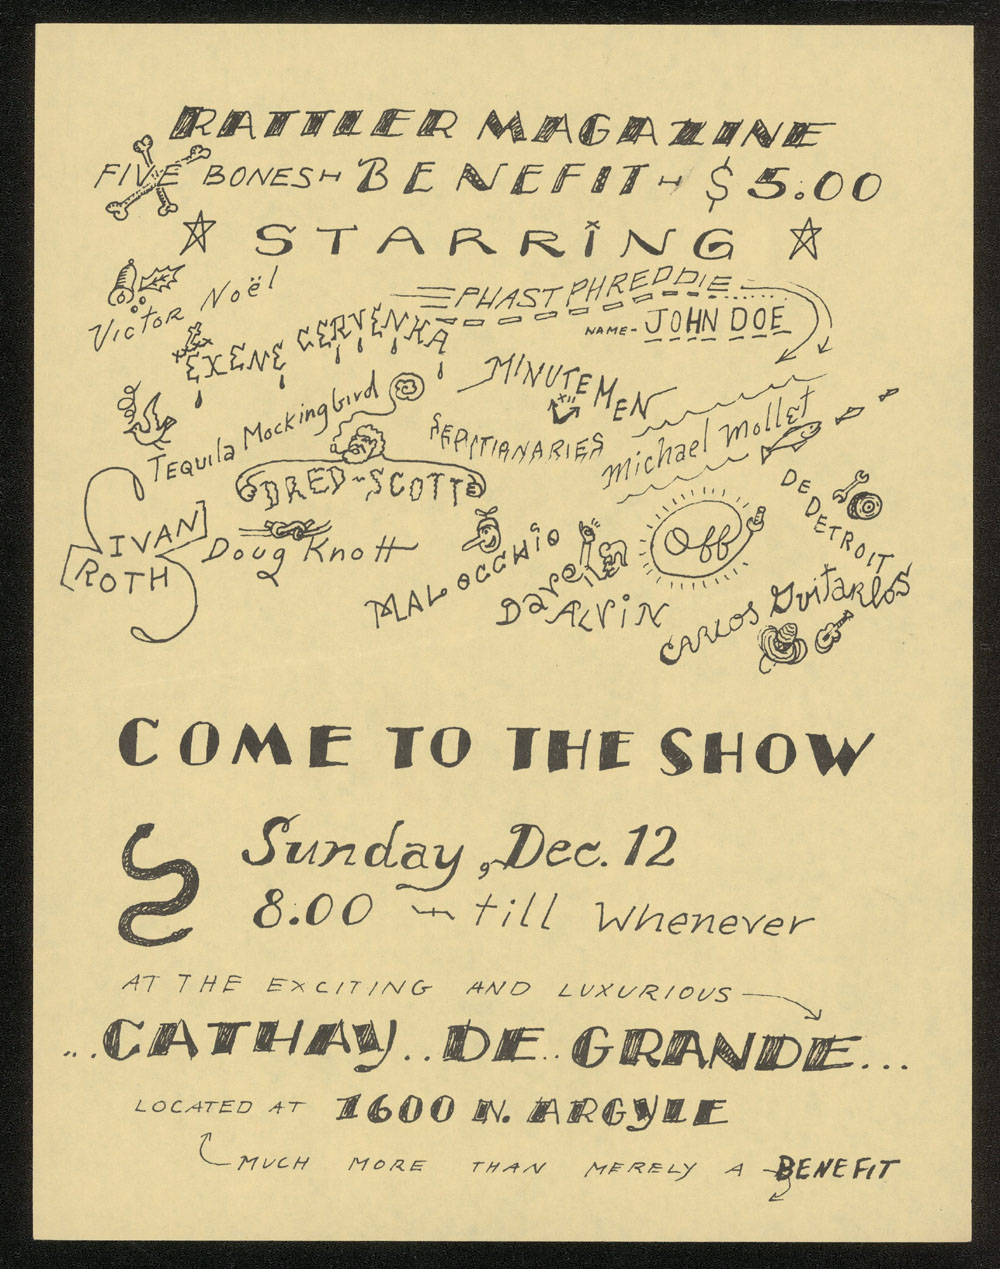 RATTLER MAGAZINE
FIVE BONES BENEFIT $5.00
STARRING
Victor Noël
PHAST PHREDDIE
NAME- JOHN DOE
EXENE CERVENKA
MINUTEMEN
Tequila Mockingbird
REDITIONARIES
Michael Mollet
DRED-SCOTT
DEDETROIT
IVAN
ROTH
Doug Knott
MALOCCHIO
Dave ALViN
Off
CARLOS GuitaRlOS
COME TO THE SHOW
Sunday, Dec. 12
8.00 - till Whenever
AT THE EXCITING AND LUXURIOUS
...CATHAY..DE..GRANDE...
LOCATED AT 1600 N. ARGYLE
MUCH MORE THAN MERELY A BENEFIT